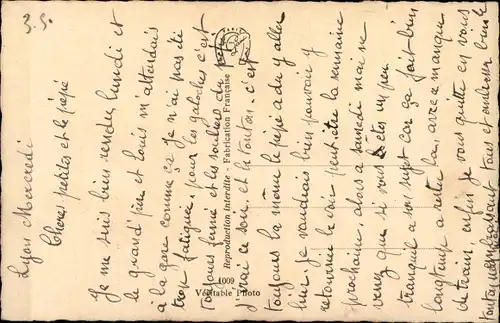 3.5.
Lyon Mercredi
Cheres petites et le pépé
Je me suis bien rendu lundi et
le grand père et Louis m'attendais
à la gare comme ça je n'ai pas été
trop fatigué, pour les galoches c'est
toujours fermé et les souliers du pépé
c'est vrai ce son, et la tonton, c'est
toujours la même le pépé a du y aller
hier, je voudrais bien pouvoir y
retourner le voir peut-être la semaine
prochaine, alors a samedi mai ne
venez que si vous êtes un peu
tranquil a son sujet car ça fais bien
longtemp a rester la, avec manque
de train, enfin je vous quitte en vous
embrassant tous et endimer bien le
Reproduction interdite - Fabrication Française
1009
Véritable Photo